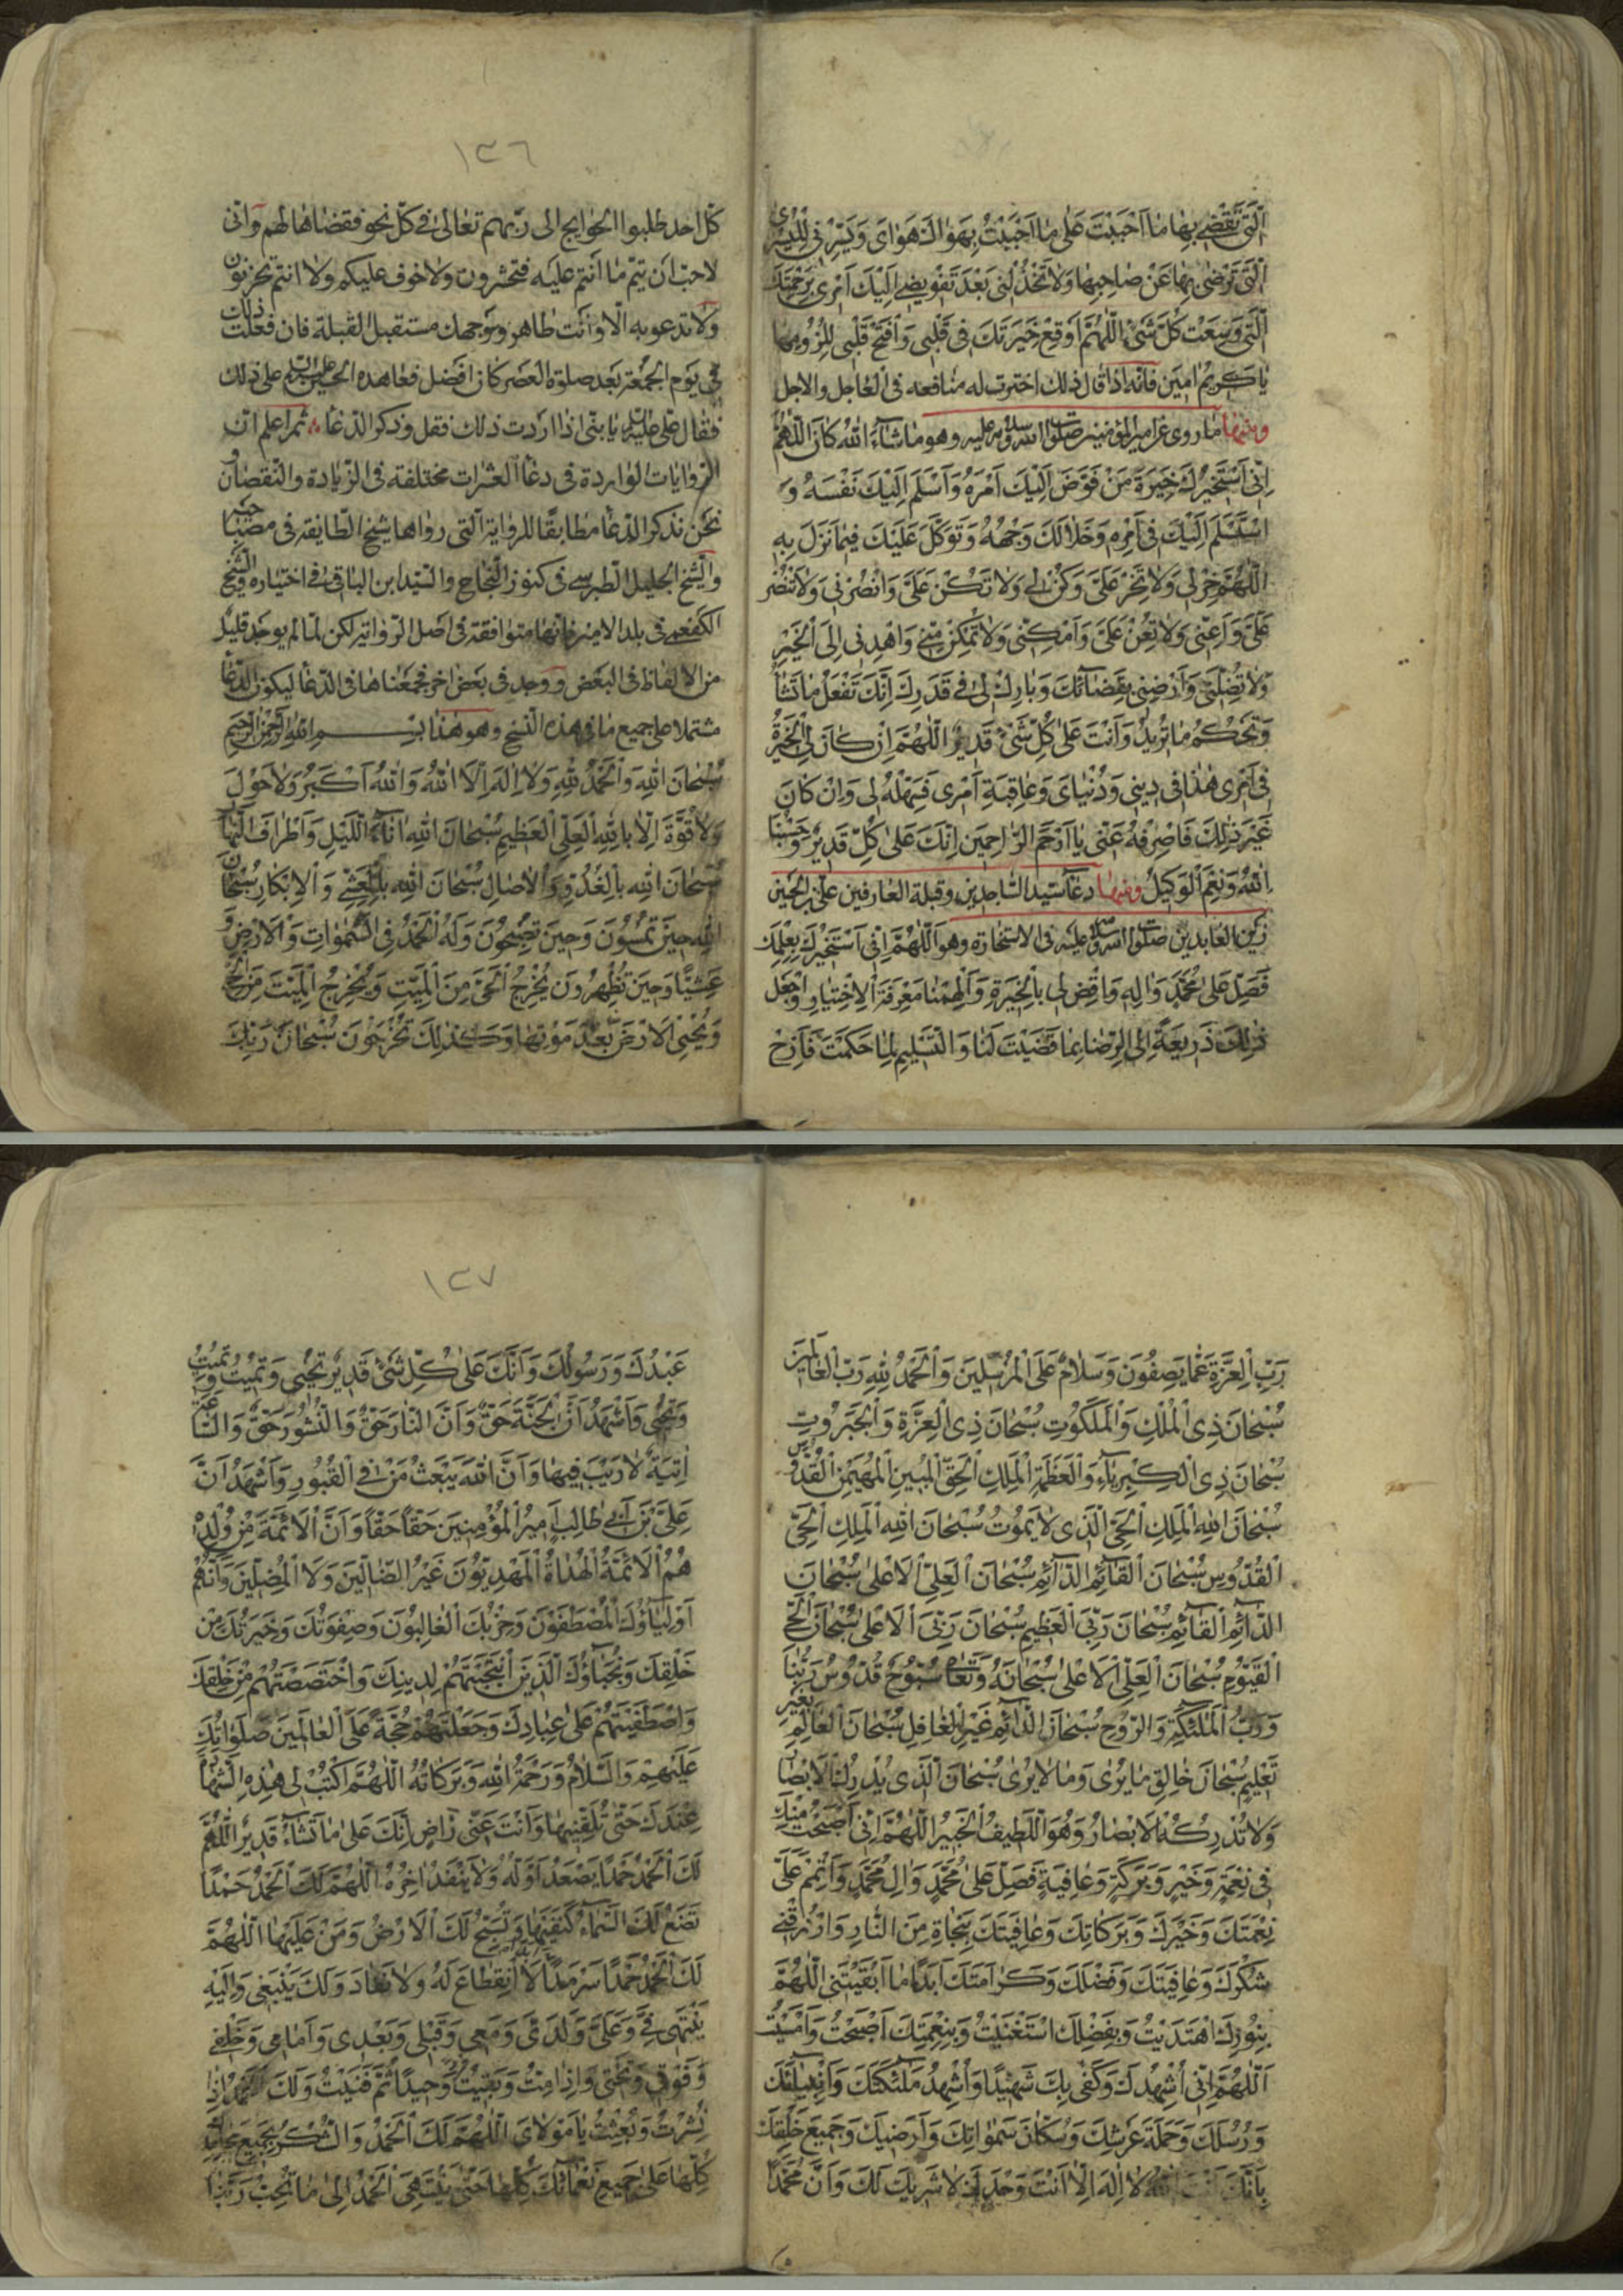 اَلَّتي تَقْضي بِهٰا مٰا اَحْبَبْتَ عَلىٰ مٰا اَحْبَبْتُ بِهَوٰاكَ هَوٰايَ وَيَسِّرْني لِلْيُسْرىٰ
اَلَّتي تَرْضىٰ بِهٰا عَنْ صٰاحِبِهٰا وَلاٰ تَخْذُلْني بَعْدَ تَفْويضي اِلَيْكَ اَمْري بِرَحْمَتِكَ
اَلَّتي وَسِعَتْ كُلَّ شَيْءٍ اَللّٰهُمَّ اَوْقِعْ خِيَرَتَكَ في قَلْبي وَافْتَحْ قَلْبي لِلُزُومِهٰا
يٰا كَريمُ اٰمينَ فانّه اذا قال ذلك اخترت له منافعه في العاجل والاجل
ومنها ما روي عن امير المؤمنين صلوات الله وسلامه عليه وهو ماشاءَ الله كانَ اَللّٰهُمَّ
اِنّي اَسْتَخيرُكَ خِيَرَةَ مَنْ فَوَّضَ اِلَيْكَ اَمْرَهُ وَاَسْلَمَ اِلَيْكَ نَفْسَهُ وَ
اسْتَسْلَمَ اِلَيْكَ في اَمْرِهِ وَخَلاٰ لَكَ وَجْهُهُ وَتَوَكَّلَ عَلَيْكَ فيمٰا نَزَلَ بِهِ
اَللّٰهُمَّ خِرْ لي وَلاٰ تَخِرْ عَلَيَّ وَكُنْ لي وَلاٰ تَكُنْ عَلَيَّ وَانْصُرْني وَلاٰ تَنْصُرْ
عَلَيَّ وَاَعِنّي وَلاٰ تُعِنْ عَلَيَّ وَاَمْكِنّي وَلاٰ تُمَكِّنْ مِنّي وَاهْدِني اِلَى الْخَيْرِ
وَلاٰ تُضِلَّني وَاَرْضِني بِقَضٰائِكَ وَبٰارِكْ لي في قَدَرِكَ اِنَّكَ تَفْعَلُ مٰا تَشٰاءُ
وَتَحْكُمُ مٰا تُريدُ وَاَنْتَ عَلىٰ كُلِّ شَيْءٍ قَديرٌ اَللّٰهُمَّ اِنْ كٰانَ لِيَ الْخِيَرَةُ
في اَمْري هٰذٰا في ديني وَدُنْيٰايَ وَعٰاقِبَةِ اَمْري فَسَهِّلْهُ لي وَاِنْ كٰانَ
غَيْرَ ذٰلِكَ فَاصْرِفْهُ عَنّي يٰا اَرْحَمَ الرّٰاحِمينَ اِنَّكَ عَلىٰ كُلِّ قَديرٌ وَحَسْبُنَا
اللهُ وَنِعْمَ الْوَكيلُ ومنها دعاء سيد الساجدين وقبلة العارفين علي بن الحسين
زين العابدين صلوات الله وسلامه عليه في الاستخارة وهو اَللّٰهُمَّ اِنّي اَسْتَخيرُكَ بِعِلْمِكَ
فَصَلِّ عَلىٰ مُحَمَّدٍ وَاٰلِهِ وَاقْضِ لي بِالْخِيَرَةِ وَاَلْهِمْنٰا مَعْرِفَةَ الْاِخْتِيٰارِ وَاجْعَلْ
ذٰلِكَ ذَريعَةً اِلَى الرِّضٰا بِمٰا قَضَيْتَ لَنٰا وَالتَّسْليمِ لِمٰا حَكَمْتَ فَاَزِحْ
١٣٦
كلّ احد طلبوا الحوايج الى ربّهم تعالى في كلّ نحو فقضاها لهم وانّي
لاحبّ ان تتمّ ما انتم عليه فتحشرون ولا خوف عليكم ولا انتم تحزنون
ولا تدعو به الّا وانت طاهر ووجهك مستقبل القبلة فان فعلت ذلك
في يوم الجمعة بعد صلوة العصر كان افضل فعاهده الحسين عليه السلام على ذلك
فقال علي عليه السلام يا بنيّ اذا اردت ذلك فقل وذكر الدّعاء ثم اعلم انّ
الروايات الواردة في دعاء العشرات مختلفة في الزيادة والنقصان و
نحن نذكر الدعاء مطابقًا للرواية التي رواها شيخ الطايفة في مصباحيه
والشيخ الجليل الطبرسي في كنوز النجاح والسيد ابن الباقي في اختياره والشيخ
الكفعمي في بلد الامين فانها متوافقة في اصل الرواية لكن لما لم يوجد قليل
من الالفاظ في البعض ووجد في بعض اخر فجمعناها في الدعاء ليكون الدعاء
مشتملا على جميع ما في هذه النسخ وهو هذا بِسْمِ اللهِ الرَّحْمٰنِ الرَّحيمِ
سُبْحٰانَ اللهِ وَالْحَمْدُ لِلّٰهِ وَلاٰ اِلٰهَ اِلَّا اللهُ وَاللهُ اَكْبَرُ وَلاٰ حَوْلَ
وَلاٰ قُوَّةَ اِلّٰا بِاللهِ الْعَلِيِّ الْعَظيمِ سُبْحٰانَ اللهِ اٰنٰاءَ اللَّيْلِ وَاَطْرٰافَ النَّهٰارِ
سُبْحٰانَ اللهِ بِالْغُدُوِّ وَالْاٰصٰالِ سُبْحٰانَ اللهِ بِالْعَشِيِّ وَالْاِبْكٰارِ سُبْحٰانَ
اللهِ حينَ تُمْسُونَ وَحينَ تُصْبِحُونَ وَلَهُ الْحَمْدُ فِي السَّمٰوٰاتِ وَالْاَرْضِ وَ
عَشِيًّا وَحينَ تُظْهِرُونَ يُخْرِجُ الْحَيَّ مِنَ الْمَيِّتِ وَيُخْرِجُ الْمَيِّتَ مِنَ الْحَيِّ
وَيُحْيِي الْاَرْضَ بَعْدَ مَوْتِهٰا وَكَذٰلِكَ تُخْرَجُونَ سُبْحٰانَ رَبِّكَ
رَبِّ الْعِزَّةِ عَمّٰا يَصِفُونَ وَسَلاٰمٌ عَلَى الْمُرْسَلينَ وَالْحَمْدُ لِلّٰهِ رَبِّ الْعٰالَمينَ
سُبْحٰانَ ذِي الْمُلْكِ وَالْمَلَكُوتِ سُبْحٰانَ ذِي الْعِزَّةِ وَالْجَبَرُوتِ
سُبْحٰانَ ذِي الْكِبْرِيٰاءِ وَالْعَظَمَةِ الْمَلِكِ الْحَقِّ الْمُبينِ الْمُهَيْمِنِ الْقُدُّوسِ
سُبْحٰانَ اللهِ الْمَلِكِ الْحَيِّ الَّذي لاٰ يَمُوتُ سُبْحٰانَ اللهِ الْمَلِكِ الْحَيِّ
الْقُدُّوسِ سُبْحٰانَ الْقٰائِمِ الدّٰائِمِ سُبْحٰانَ الْعَلِيِّ الْاَعْلىٰ سُبْحٰانَ
الدّٰائِمِ الْقٰائِمِ سُبْحٰانَ رَبِّيَ الْعَظيمِ سُبْحٰانَ رَبِّيَ الْاَعْلىٰ سُبْحٰانَ الْحَيِّ
الْقَيُّومِ سُبْحٰانَ الْعَلِيِّ الْاَعْلىٰ سُبْحٰانَهُ وَتَعٰالىٰ سُبُّوحٌ قُدُّوسٌ رَبُّنٰا
وَرَبُّ الْمَلٰئِكَةِ وَالرُّوحِ سُبْحٰانَ الدّٰائِمِ غَيْرِ الْغٰافِلِ سُبْحٰانَ الْعٰالِمِ بِغَيْرِ
تَعْليمٍ سُبْحٰانَ خٰالِقِ مٰا يُرىٰ وَمٰا لاٰ يُرىٰ سُبْحٰانَ الَّذي يُدْرِكُ الْاَبْصٰارَ
وَلاٰ تُدْرِكُهُ الْاَبْصٰارُ وَهُوَ اللَّطيفُ الْخَبيرُ اَللّٰهُمَّ اِنّي اَصْبَحْتُ مِنْكَ
في نِعْمَةٍ وَخَيْرٍ وَبَرَكَةٍ وَعٰافِيَةٍ فَصَلِّ عَلىٰ مُحَمَّدٍ وَاٰلِ مُحَمَّدٍ وَاَتْمِمْ عَلَيَّ
نِعْمَتَكَ وَخَيْرَكَ وَبَرَكٰاتِكَ وَعٰافِيَتَكَ بِنَجٰاةٍ مِنَ النّٰارِ وَارْزُقْني
شُكْرَكَ وَعٰافِيَتَكَ وَفَضْلَكَ وَكَرٰامَتَكَ اَبَدًا مٰا اَبْقَيْتَني اَللّٰهُمَّ
بِنُورِكَ اهْتَدَيْتُ وَبِفَضْلِكَ اسْتَغْنَيْتُ وَبِنِعْمَتِكَ اَصْبَحْتُ وَاَمْسَيْتُ
اَللّٰهُمَّ اِنّي اُشْهِدُكَ وَكَفىٰ بِكَ شَهيدًا وَاُشْهِدُ مَلٰئِكَتَكَ وَاَنْبِيٰائَكَ
وَرُسُلَكَ وَحَمَلَةَ عَرْشِكَ وَسُكّٰانَ سَمٰوٰاتِكَ وَاَرَضيكَ وَجَميعَ خَلْقِكَ
بِاَنَّكَ اَنْتَ اللهُ لاٰ اِلٰهَ اِلّٰا اَنْتَ وَحْدَكَ لاٰ شَريكَ لَكَ وَاَنَّ مُحَمَّدًا
١٣٧
عَبْدُكَ وَرَسُولُكَ وَاَنَّكَ عَلىٰ كُلِّ شَيْءٍ قَديرٌ تُحْيي وَتُميتُ وَتُميتُ
وَتُحْيي وَاَشْهَدُ اَنَّ الْجَنَّةَ حَقٌّ وَاَنَّ النّٰارَ حَقٌّ وَالنُّشُورَ حَقٌّ وَالسّٰاعَةَ
اٰتِيَةٌ لاٰ رَيْبَ فيهٰا وَاَنَّ اللهَ يَبْعَثُ مَنْ فِي الْقُبُورِ وَاَشْهَدُ اَنَّ
عَلِيَّ بْنَ اَبي طٰالِبٍ اَميرُ الْمُؤْمِنينَ حَقًّا حَقًّا وَاَنَّ الْاَئِمَّةَ مِنْ وُلْدِهِ
هُمُ الْاَئِمَّةُ الْهُدٰاةُ الْمَهْدِيُّونَ غَيْرُ الضّٰالّينَ وَلاَ الْمُضِلّينَ وَاَنَّهُمْ
اَوْلِيٰاؤُكَ الْمُصْطَفَوْنَ وَحِزْبُكَ الْغٰالِبُونَ وَصِفْوَتُكَ وَخِيَرَتُكَ مِنْ
خَلْقِكَ وَنُجَبٰاؤُكَ الَّذينَ انْتَجَبْتَهُمْ لِدينِكَ وَاخْتَصَصْتَهُمْ مِنْ خَلْقِكَ
وَاصْطَفَيْتَهُمْ عَلىٰ عِبٰادِكَ وَجَعَلْتَهُمْ حُجَّةً عَلَى الْعٰالَمينَ صَلَوٰاتُكَ
عَلَيْهِمْ وَالسَّلاٰمُ وَرَحْمَةُ اللهِ وَبَرَكٰاتُهُ اَللّٰهُمَّ اكْتُبْ لي هٰذِهِ الشَّهٰادَةَ
عِنْدَكَ حَتّىٰ تُلَقِّنَنيهٰا وَاَنْتَ عَنّي رٰاضٍ اِنَّكَ عَلىٰ مٰا تَشٰاءُ قَديرٌ اَللّٰهُمَّ
لَكَ الْحَمْدُ حَمْدًا يَصْعَدُ اَوَّلُهُ وَلاٰ يَنْفَدُ اٰخِرُهُ اَللّٰهُمَّ لَكَ الْحَمْدُ حَمْدًا
تَضَعُ لَكَ السَّمٰاءُ كَنَفَيْهٰا وَتُسَبِّحُ لَكَ الْاَرْضُ وَمَنْ عَلَيْهٰا اَللّٰهُمَّ
لَكَ الْحَمْدُ حَمْدًا سَرْمَدًا لاَ انْقِطٰاعَ لَهُ وَلاٰ نَفٰادَ وَلَكَ يَنْبَغي وَاِلَيْهِ
يَنْتَهي فِيَّ وَعَلَيَّ وَلَدَيَّ وَمَعي وَقَبْلي وَبَعْدي وَاَمٰامي وَخَلْفي
وَفَوْقي وَتَحْتي وَاِذٰا مِتُّ وَبَقيتُ وَحيدًا ثُمَّ فَنيتُ وَلَكَ الْحَمْدُ اِذٰا
نُشِرْتُ وَبُعِثْتُ يٰا مَوْلاٰيَ اَللّٰهُمَّ لَكَ الْحَمْدُ وَالشُّكْرُ بِجَميعِ مَحٰامِدِكَ
كُلِّهٰا عَلىٰ جَميعِ نَعْمٰائِكَ كُلِّهٰا حَتّىٰ يَنْتَهِيَ الْحَمْدُ اِلىٰ مٰا تُحِبُّ رَبَّنٰا